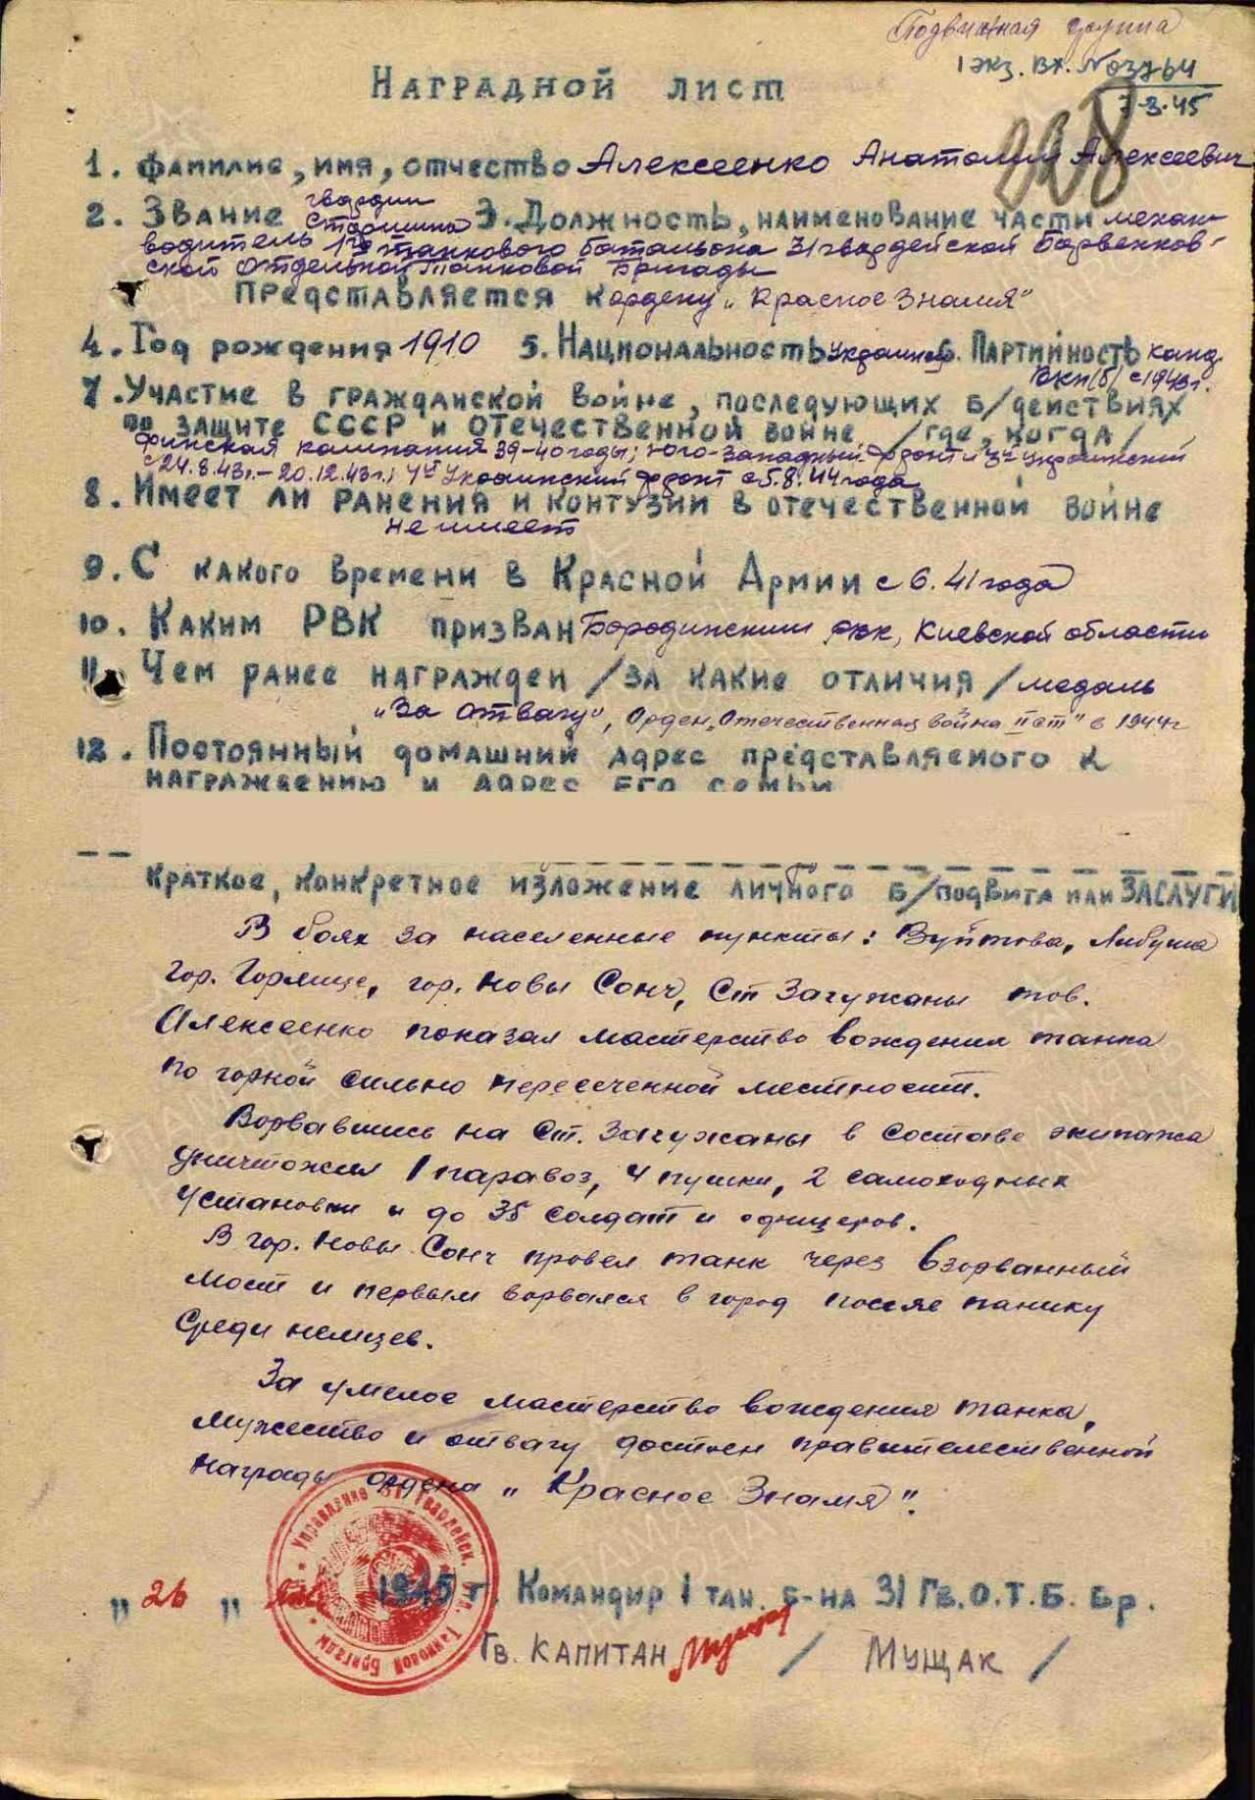 Подвижная группа
1 экз. Вх. № 03764
7-3-45
228
Наградной лист
1. Фамилие, имя, отчество Алексеенко Анатолий Алексеевич
гвардии
2. Звание старшина 3. Должность, наименование части механ-
водитель 1го танкового батальона 31 гвардейской Барвенков-
ской отдельной танковой бригады
Представляется к ордену „Красное Знамя"
4. Год рождения 1910 5. Национальность украинец 6. Партийность канд.
ВКП(б) с 1943 г.
7. Участие в гражданской войне, последующих б/действиях
по защите СССР и Отечественной войне /где, когда/
Финская кампания 39-40 годы; Юго-Западный фронт и 3й Украинский
с 24.8.43г.-20.12.43г.; 4й Украинский фронт с 5.8.44 года
8. Имеет ли ранения и контузии в отечественной войне
не имеет
9. С какого времени в Красной Армии с 6.41 года
10. Каким РВК призван Бородянским рвк, Киевской области
11. Чем ранее награжден /за какие отличия/ медаль
„За отвагу", Орден „Отечественная война II ст" в 1944г
12. Постоянный домашний адрес представляемого к
награждению и адрес его семьи
Краткое, конкретное изложение личного б/подвига или заслуги
В боях за населенные пункты: Вуйтова, Либуша
гор. Горлице, гор. Новы Сонч, Ст Загужаны тов.
Алексеенко показал мастерство вождения танка
по горной сильно пересеченной местности.
Ворвавшись на Ст. Загужаны в составе экипажа
уничтожил 1 паравоз, 4 пушки, 2 самоходных
установки и до 35 солдат и офицеров.
В гор. Новы Сонч провел танк через взорванный
мост и первым ворвался в город посеяв панику
среди немцев.
За умелое мастерство вождения танка,
мужество и отвагу достоен правительственной
награды ордена „Красное Знамя".
„26" 1945 г. Командир 1 тан. б-на 31 Гв.О.Т.Б.Бр.
Гв. капитан / Мущак /
Управление Гвардейск. Танковой Бригады